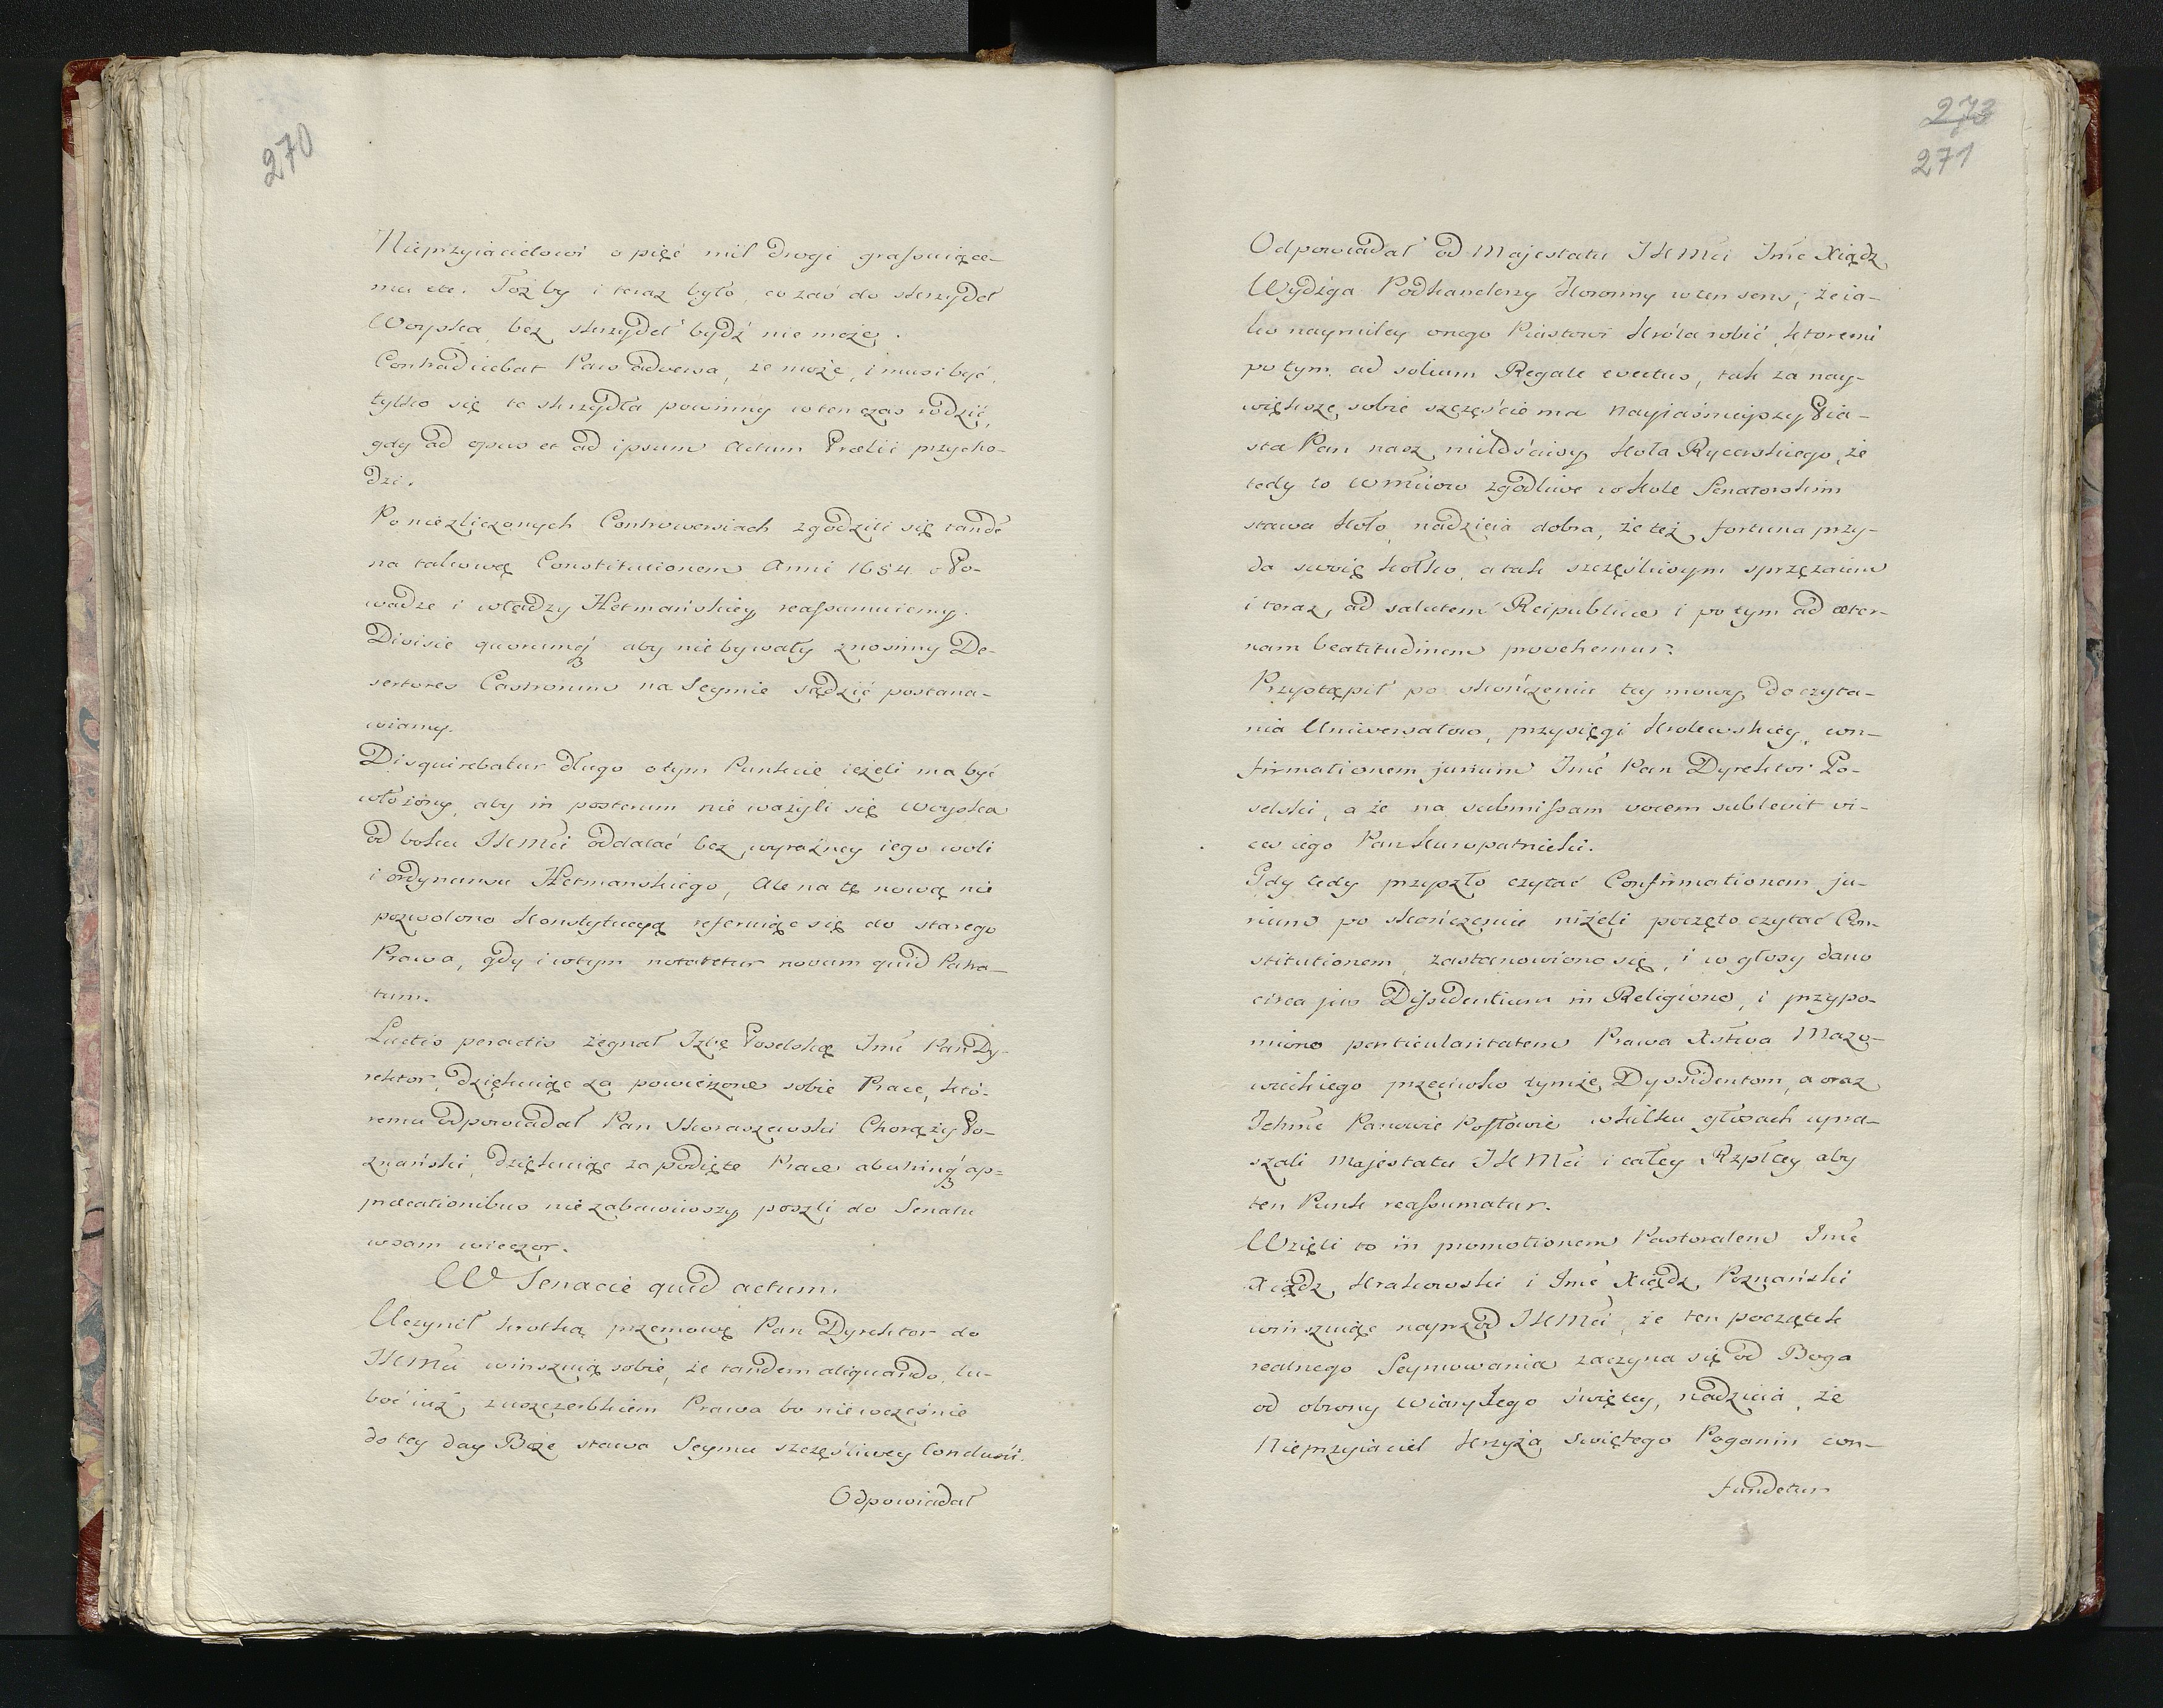 270
Nieprzyiacielowi o pięć mil drogi grassuiące-
mu etc. Toż by i teraz było, co zaś do skrzydeł
Woyska, bez skrzydeł bydź nie może.
Contradicebat Pars adversa, że może, i musi być,
tylko się te skrzydła powinny w ten czas rodzić,
gdy ad opus et ad ipsum Actum Prælii przycho-
dzi.
Po niezliczonych Controwersiach zgodzili się tandẽ
na takową Constitucionem Anni 1654 o Po-
wadze i władzy Hetmańskiey reassumuiemy.
Divisie quorumq̃ aby nie bywały znosimy De-
sertores Castrorum na Seymie sądzić postana-
wiamy.
Disquirebatur długo o tym Punkcie ieżeli ma być
włożony, aby in posterum nie ważyli się Woyska
od boku JKMci oddalać bez wyraźney iego woli
i ordynansu Hetmanskiego, Ale na tę nową nie
pozwolono Konstytucyą referuiąc się do starego
Prawa, gdy i w tym notaretur novum quid Patra-
tum.
Luctis peractis żegnał Izbę Poselską Jmć Pan Dy-
rektor, dziękuiąc za powierzone sobie Prace, któ-
remu odpowiadał Pan Skoraszewski Chorąży Po-
znański, dziękuiąc za podięte Prace abutrinq̃ ap=
precationibus nie zabawiwszy poszli do Senatu
w sam wieczor.
W Senacie quid actum.
Uczynił krotką przemowę Pan Dyrektor do
JKMci winszuią sobie, że tandem aliquando, lu-
boć iuż z uszczerbkiem Prawa bo nie wcześnie
do tey day Boże stawa Seymu szczęśliwey Conclusii.
Odpowiadał
273
271
Odpowiadał od Majestatu JKMci Jmć Xiądz
Wydżga Podkanclerzy Koronny w ten sens; że ia-
ko naymiley onego Piastowi Króla robić, ktoremu
po tym ad solium Regale evectus, tak za nay-
większe sobie szczęście ma Nayiaśnieyszy Pia-
sta Pan nasz miłościwy Koła Rycerskiego, że
tedy to zgodliwe w Kole Senatorskim
stawa Koło, nadzieia dobra, że też fortuna przy-
da swoię kołko, a tak szczęśliwym sprzężaiem
i teraz ad salutem Reipublicæ i po tym ad æter-
nam beatitudinem provehemur.
Przystąpił po skończeniu tey mowy do czyta-
nia Uniwersałow, przysięgi Krolewskiey, con-
firmationem jurium Jmć Pan Dyrektor Po-
selski, a że na submissam vocem sublevit vi-
ces iego Pan Kuropatnicki.
Gdy tedy przyszło czytać Confirmationem ju-
rium po skończeniu niżeli poczęto czytać Con-
stitutionem, zastanowiono się, i w głosy dano
circa jus Dissidentium in Religione, i przypo-
miono particularitatem Prawa Xstwa Mazo-
wieckiego przeciwko tymże Dyssidentom, a oraz
Ichmć Panowie Posłowie w kilku głosach upra-
szali Majestatu JKMci i całey Rzpltey aby
ten Punkt reassumatur.
Wzięli to in promotionem Pastoralem Jmć
Xiądz Krakowski i Jmć Xiądz Poznański
winszuiąc naprzod JKMci, że ten początek
realnego Seymowania zaczyna się od Boga
od obrony Wiary Jego świętey, nadzieia, że
Nieprzyiaciel Krzyża Swiętego Poganin con-
fundetur